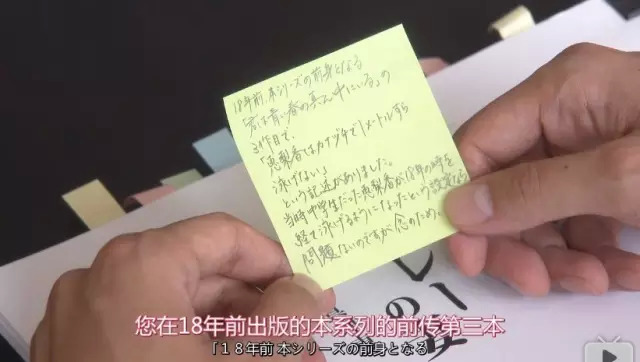 18年前、本シリーズの前身となる
「君は青い春の真ん中にいる」の
3作目で、
「恵梨香はカナヅチで1メートルすら
泳げない」
という記述がありました。
当時中学生だった恵梨香が18年の時を
経て泳げるようになったという設定なら
問題ないのですが念のため。
您在18年前出版的本系列的前传第三本
「１８年前 本シリーズの前身となる